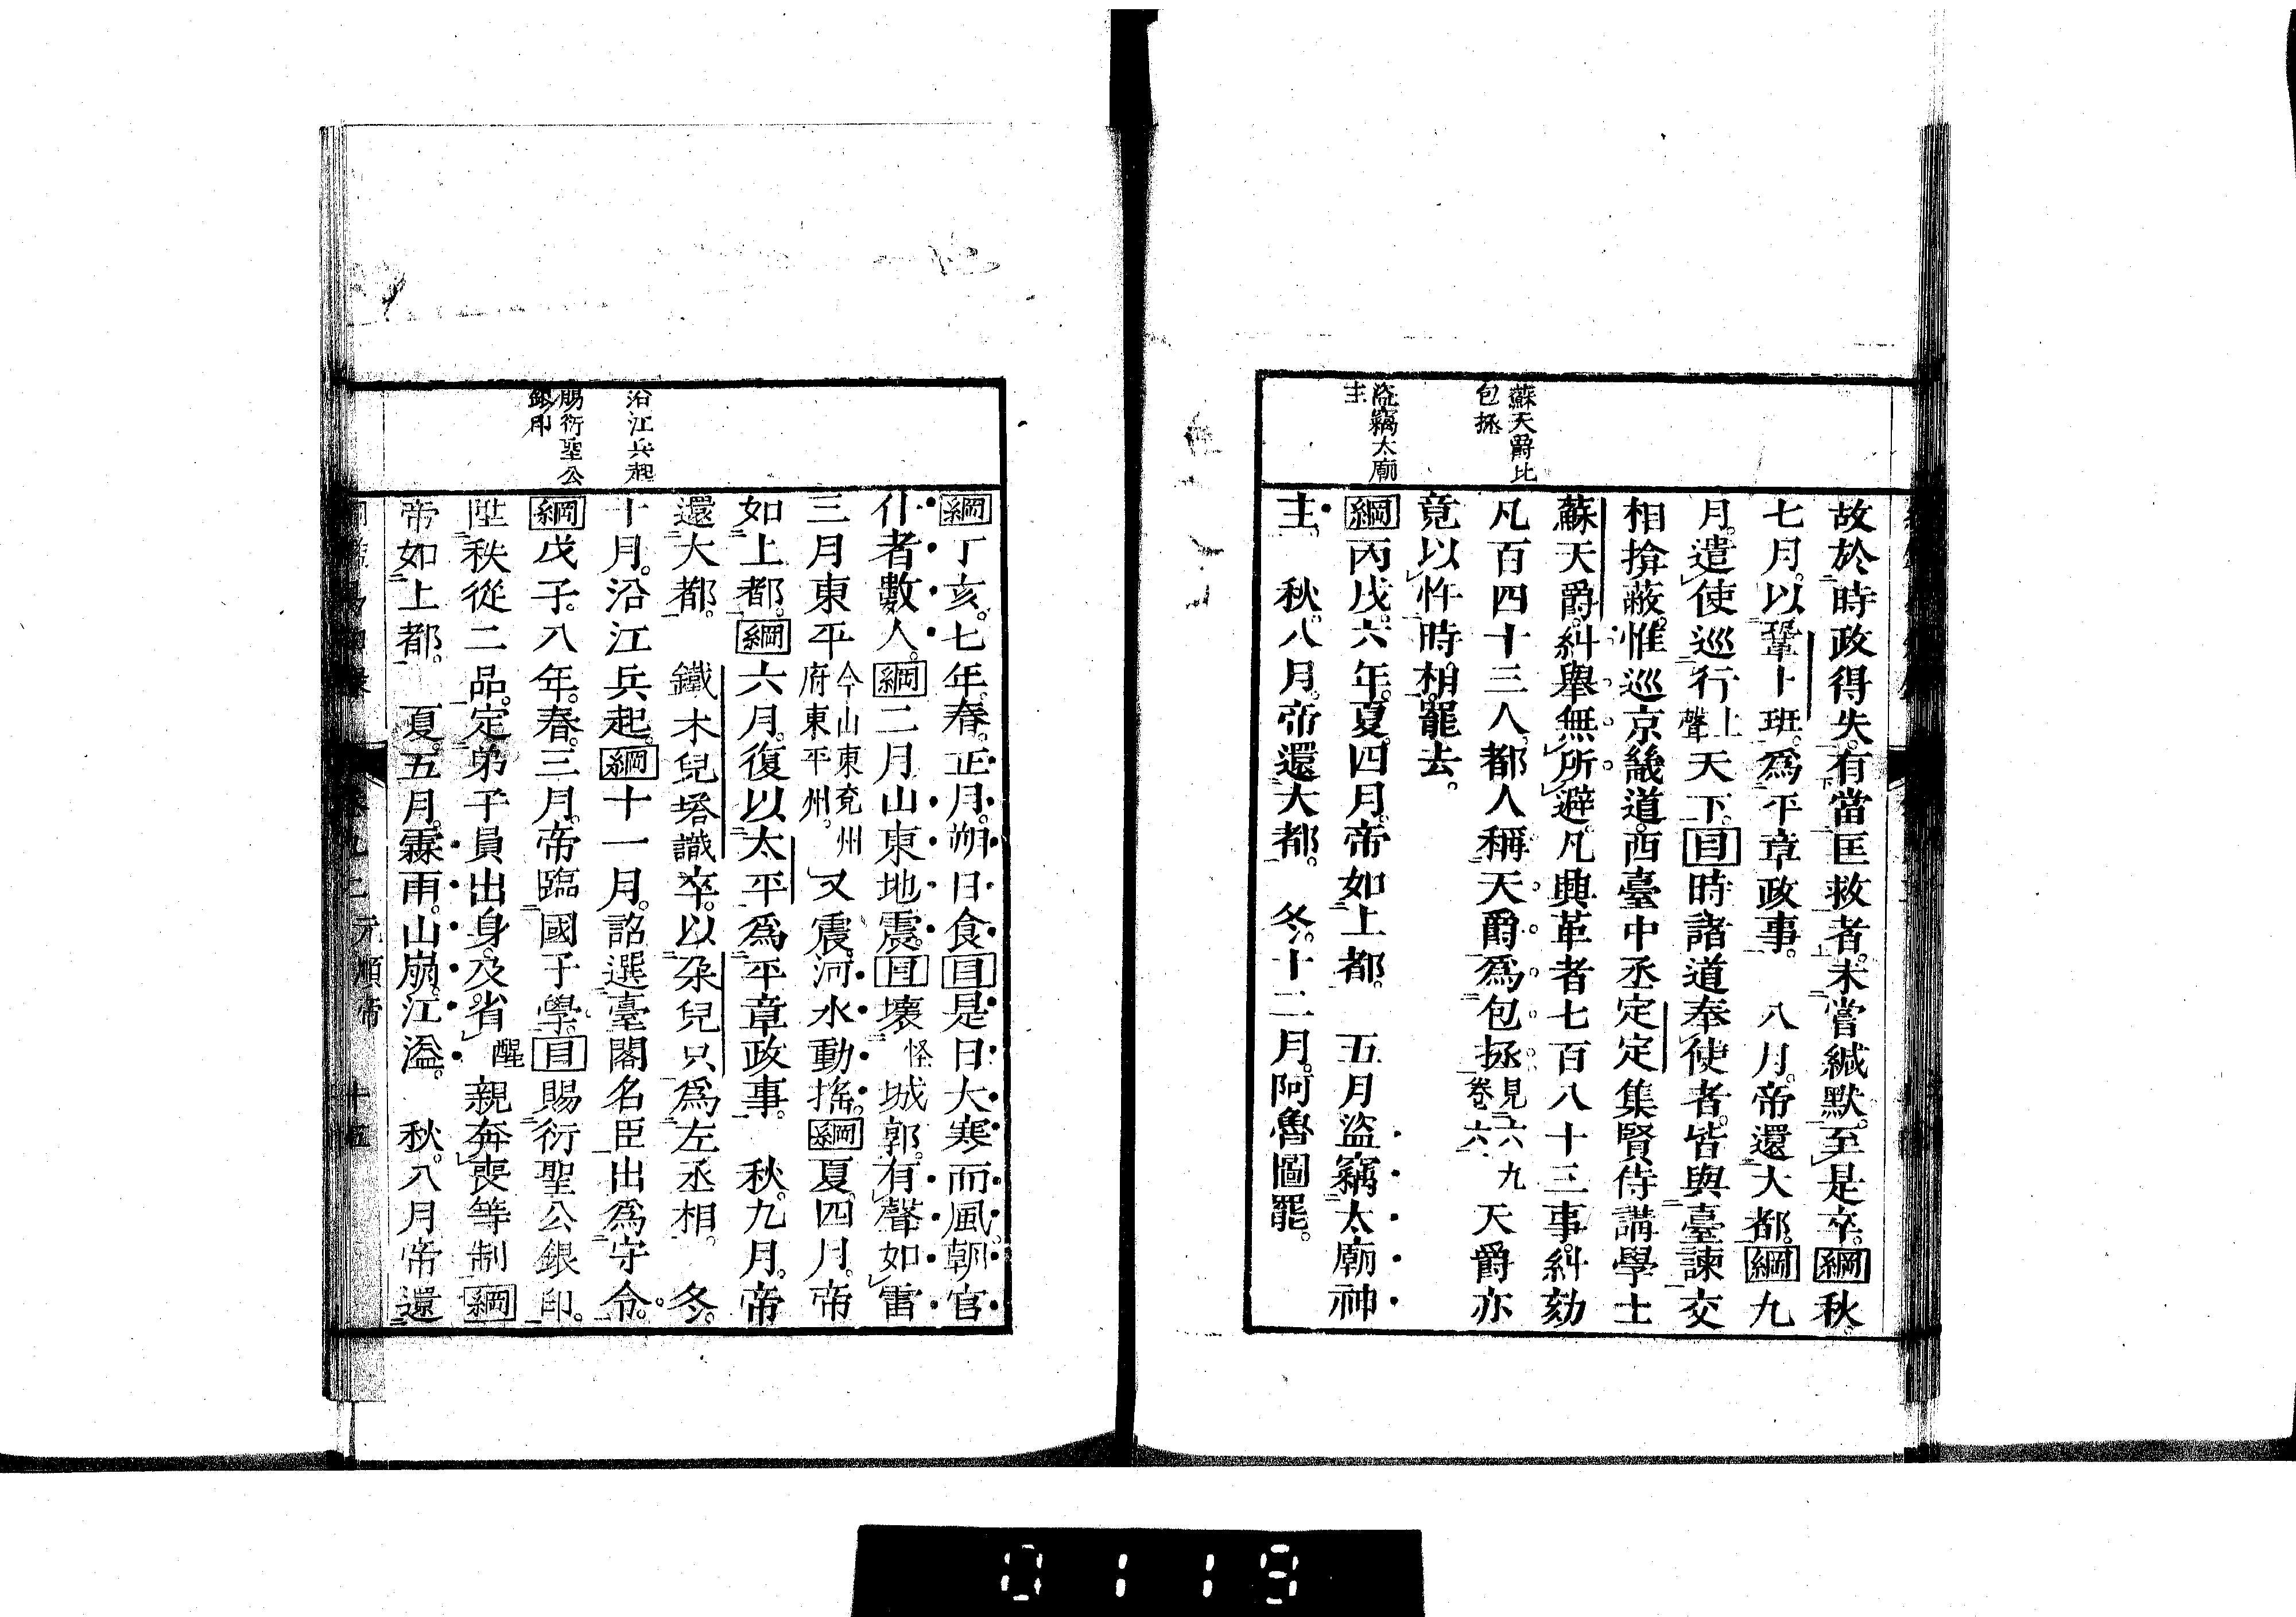 蘇天爵比
包拯
盜竊太廟
主
故於時政得失。有當匡救者。未嘗緘默。至是卒。綱秋
七月。以鞏卜班。爲平章政事。　八月。帝還大都。綱九
月。遣使巡行上聲天下。目時諸道奉使者。皆與臺諫交
相揜蔽。惟巡京畿道。西臺中丞定定集賢侍講學士
蘇天爵。糾舉無所避。凡興革者七百八十三事。糾劾
凡百四十三人。都人稱天爵爲包拯見六九卷六天爵亦
竟以忤時相。罷去。
綱丙戌。六年。夏。四月。帝如上都。　五月盜竊太廟神
主。　秋。八月。帝還大都。　冬。十二月。阿魯圖罷。
沿江兵起
賜衍聖公
銀印
綱丁亥。七年。春。正月。朔日食目是日大寒而風。朝官
仆者數人。綱二月山東地震。目壞怪城郭。有聲如雷
三月東平今山東兗州府東平州。又震。河水動搖。綱夏。四月。帝
如上都。綱六月。復以太平爲平章政事。　秋。九月。帝
還大都。　鐵木兒塔識卒。以朶兒只爲左丞相。　冬。
十月。沿江兵起。綱十一月。詔選臺閣名臣出爲守令。
綱戊子。八年。春。三月。帝臨國子學。目賜衍聖公銀印。
陞秩從二品。定弟子員出身。及省醒親奔喪等制綱
帝如上都。　夏。五月。霖雨。山崩。江溢。　秋。八月帝還
元順帝　十五
0119